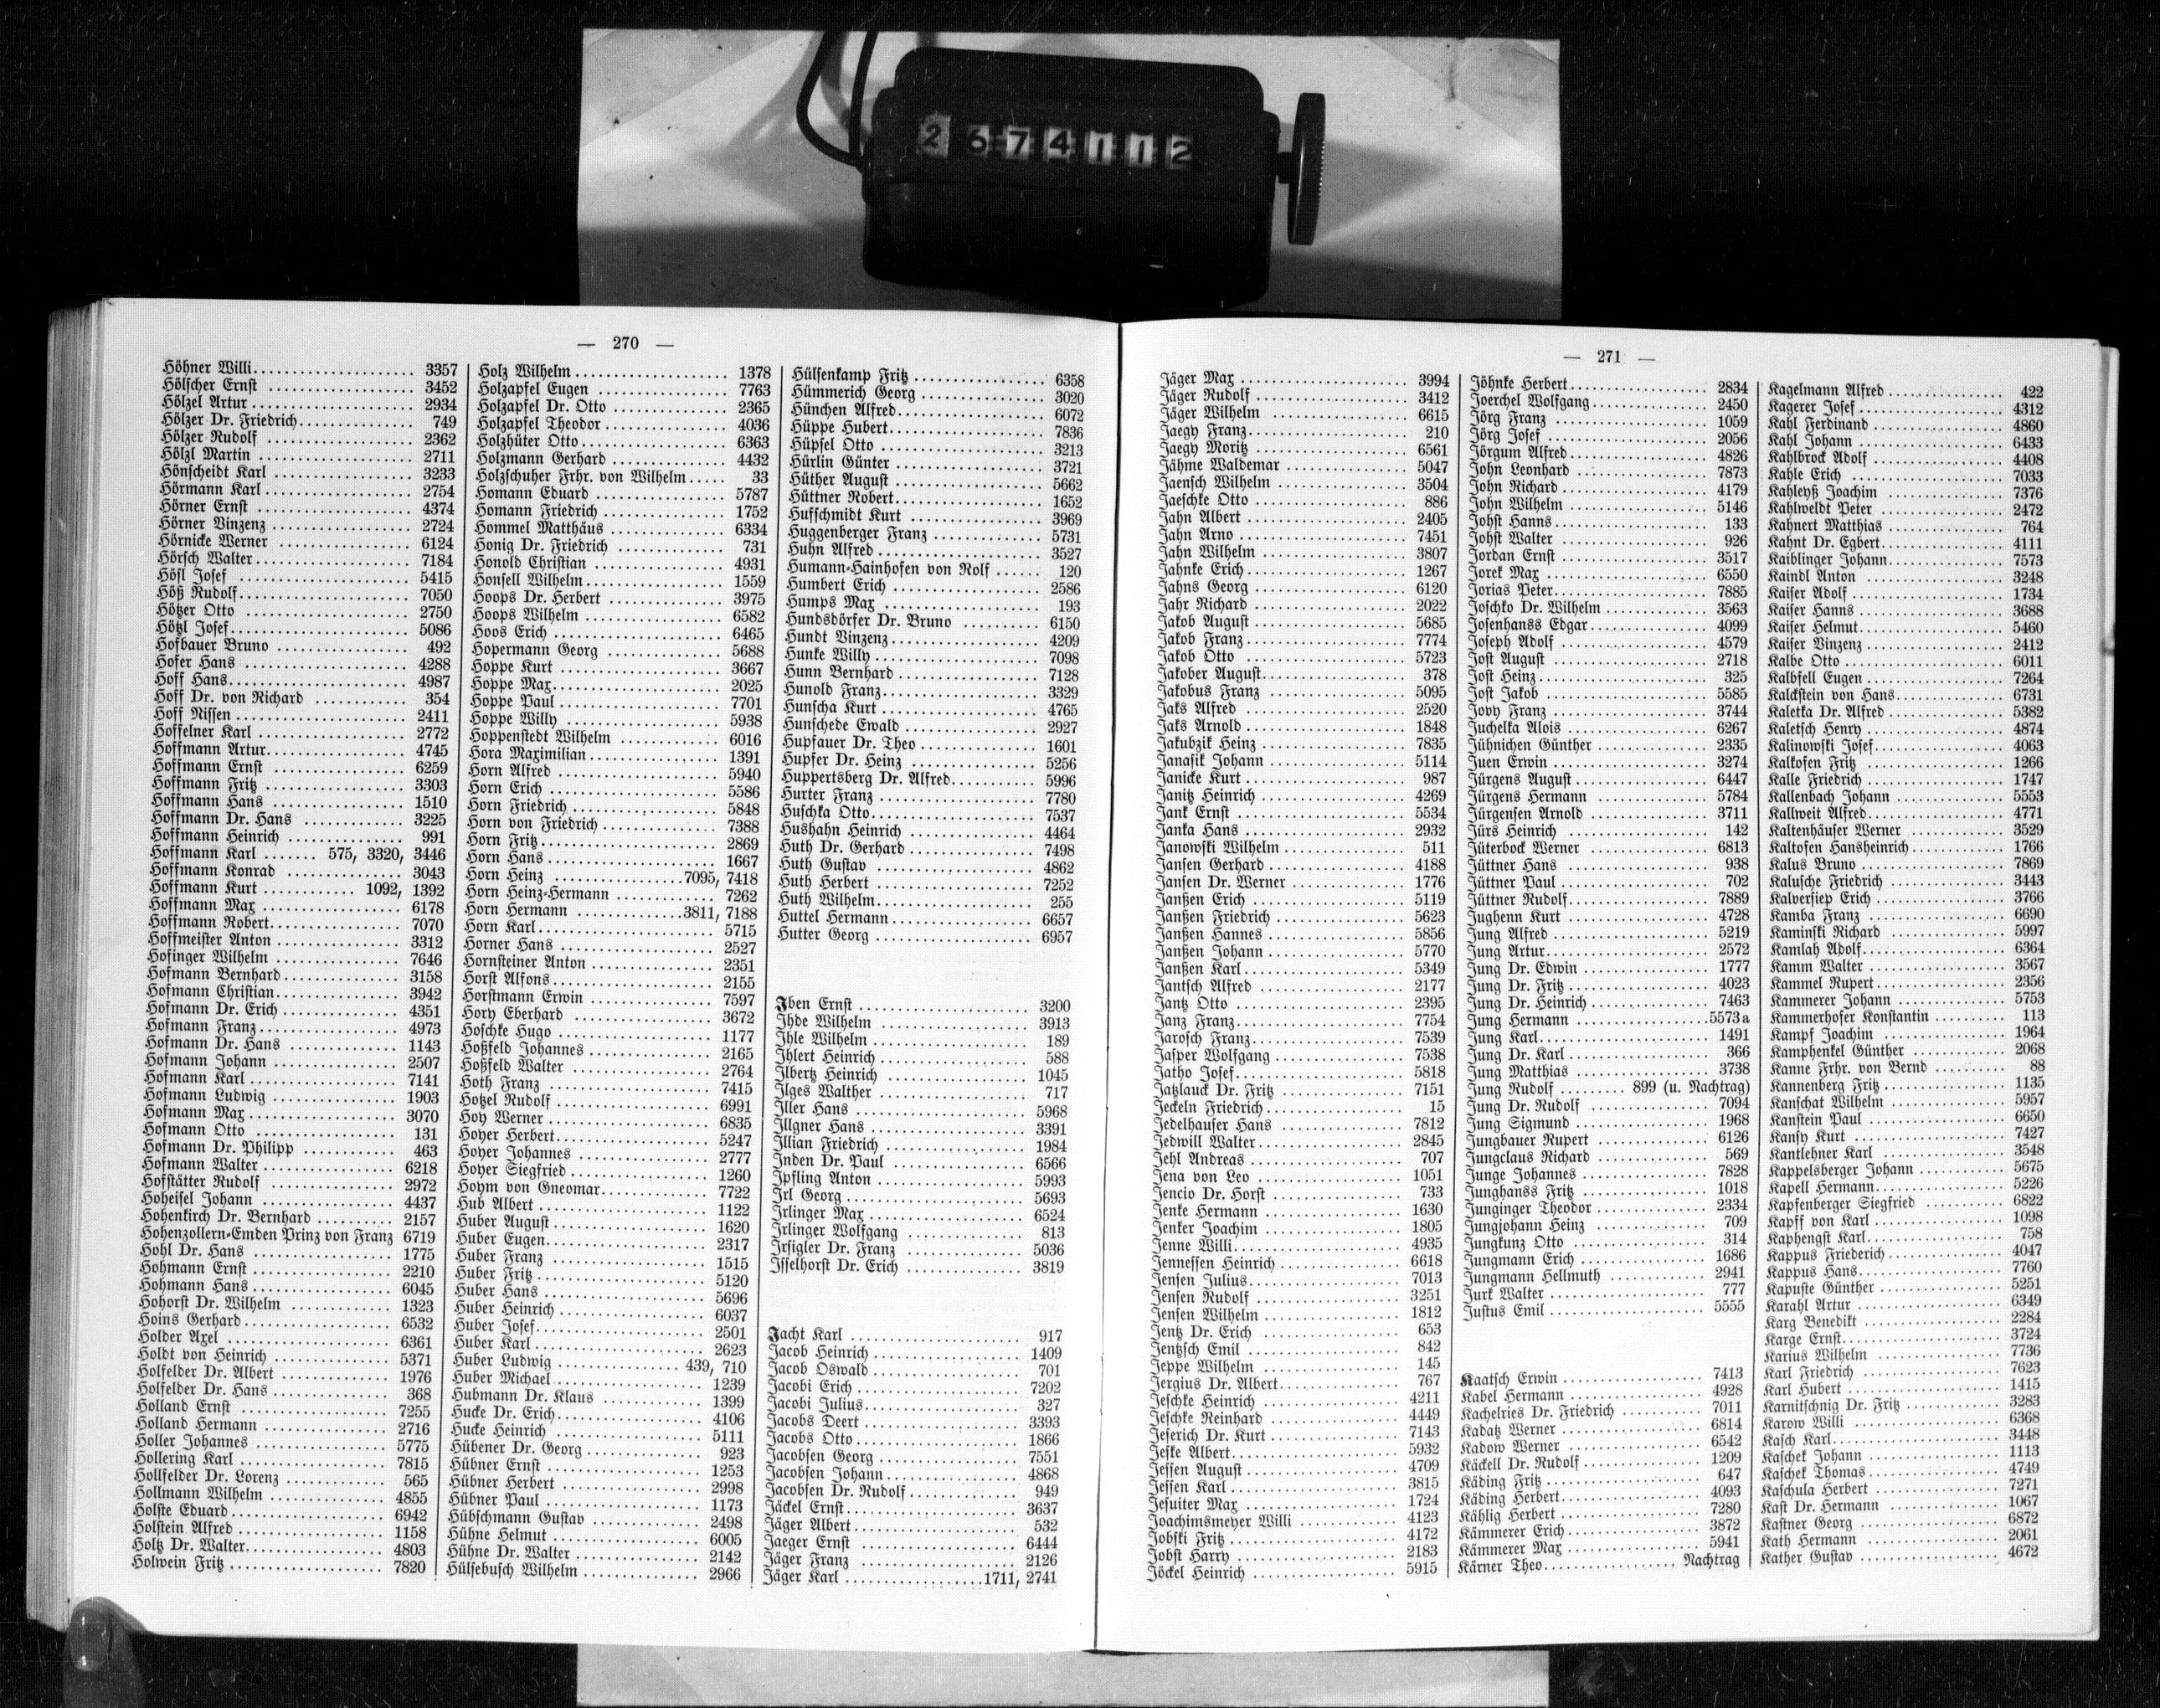 2674112
— 270 —
Höhner Willi 3357
Hölscher Ernst 3452
Hölzel Artur 2934
Hölzer Dr. Friedrich 749
Hölzer Rudolf 2362
Hölzl Martin 2711
Hönscheidt Karl 3233
Hörmann Karl 2754
Hörner Ernst 4374
Hörner Vinzenz 2724
Hörnicke Werner 6124
Hörsch Walter 7184
Hösl Josef 5415
Höß Rudolf 7050
Hötzer Otto 2750
Hötzl Josef 5086
Hofbauer Bruno 492
Hofer Hans 4288
Hoff Hans 4987
Hoff Dr. von Richard 354
Hoff Nissen 2411
Hoffelner Karl 2772
Hoffmann Artur 4745
Hoffmann Ernst 6259
Hoffmann Fritz 3303
Hoffmann Hans 1510
Hoffmann Dr. Hans 3225
Hoffmann Heinrich 991
Hoffmann Karl 575, 3320, 3446
Hoffmann Konrad 3043
Hoffmann Kurt 1092, 1392
Hoffmann Max 6178
Hoffmann Robert 7070
Hoffmeister Anton 3312
Hofinger Wilhelm 7646
Hofmann Bernhard 3158
Hofmann Christian 3942
Hofmann Dr. Erich 4351
Hofmann Franz 4973
Hofmann Dr. Hans 1143
Hofmann Johann 2507
Hofmann Karl 7141
Hofmann Ludwig 1903
Hofmann Max 3070
Hofmann Otto 131
Hofmann Dr. Philipp 463
Hofmann Walter 6218
Hofstätter Rudolf 2972
Hoheisel Johann 4437
Hohenkirch Dr. Bernhard 2157
Hohenzollern-Emden Prinz von Franz 6719
Hohl Dr. Hans 1775
Hohmann Ernst 2210
Hohmann Hans 6045
Hohorst Dr. Wilhelm 1323
Hoins Gerhard 6532
Holder Axel 6361
Holdt von Heinrich 5371
Holfelder Dr. Albert 1976
Holfelder Dr. Hans 368
Holland Ernst 7255
Holland Hermann 2716
Holler Johannes 5775
Hollering Karl 7815
Hollfelder Dr. Lorenz 565
Hollmann Wilhelm 4855
Holste Eduard 6942
Holstein Alfred 1158
Holtz Dr. Walter 4803
Holwein Fritz 7820
Holz Wilhelm 1378
Holzapfel Eugen 7763
Holzapfel Dr. Otto 2365
Holzapfel Theodor 4036
Holzhüter Otto 6363
Holzmann Gerhard 4432
Holzschuher Frhr. von Wilhelm 33
Homann Eduard 5787
Homann Friedrich 1752
Hommel Matthäus 6334
Honig Dr. Friedrich 731
Honold Christian 4931
Honsell Wilhelm 1559
Hoops Dr. Herbert 3975
Hoops Wilhelm 6582
Hoos Erich 6465
Hopermann Georg 5688
Hoppe Kurt 3667
Hoppe Max 2025
Hoppe Paul 7701
Hoppe Willy 5938
Hoppenstedt Wilhelm 6016
Hora Maximilian 1391
Horn Alfred 5940
Horn Erich 5586
Horn Friedrich 5848
Horn von Friedrich 7388
Horn Fritz 2869
Horn Hans 1667
Horn Heinz 7095, 7418
Horn Heinz-Hermann 7262
Horn Hermann 3811, 7188
Horn Karl 5715
Horner Hans 2527
Hornsteiner Anton 2351
Horst Alfons 2155
Horstmann Erwin 7597
Hory Eberhard 3672
Hoschke Hugo 1177
Hoßfeld Johannes 2165
Hoßfeld Walter 2764
Hoth Franz 7415
Hotzel Rudolf 6991
Hoy Werner 6835
Hoyer Herbert 5247
Hoyer Johannes 2777
Hoyer Siegfried 1260
Hoym von Gneomar 7722
Hub Albert 1122
Huber August 1620
Huber Eugen 2317
Huber Franz 1515
Huber Fritz 5120
Huber Hans 5696
Huber Heinrich 6037
Huber Josef 2501
Huber Karl 2623
Huber Ludwig 439, 710
Huber Michael 1239
Hubmann Dr. Klaus 1399
Hucke Dr. Erich 4106
Hucke Heinrich 5111
Hübener Dr. Georg 923
Hübner Ernst 1253
Hübner Herbert 2998
Hübner Paul 1173
Hübschmann Gustav 2498
Hühne Helmut 6005
Hühne Dr. Walter 2142
Hülsebusch Wilhelm 2966
Hülsenkamp Fritz 6358
Hümmerich Georg 3020
Hünchen Alfred 6072
Hüppe Hubert 7836
Hüpsel Otto 3213
Hürlin Günter 3721
Hüther August 5662
Hüttner Robert 1652
Hufschmidt Kurt 3969
Huggenberger Franz 5731
Huhn Alfred 3527
Humann-Hainhofen von Rolf 120
Humbert Erich 2586
Humps Max 193
Hundsdörfer Dr. Bruno 6150
Hundt Vinzenz 4209
Hunke Willy 7098
Hunn Bernhard 7128
Hunold Franz 3329
Hunscha Kurt 4765
Hunschede Ewald 2927
Hupfauer Dr. Theo 1601
Hupfer Dr. Heinz 5256
Huppertsberg Dr. Alfred 5996
Hurter Franz 7780
Huschka Otto 7537
Hushahn Heinrich 4464
Huth Dr. Gerhard 7498
Huth Gustav 4862
Huth Herbert 7252
Huth Wilhelm 255
Huttel Hermann 6657
Hutter Georg 6957
Iben Ernst 3200
Ihde Wilhelm 3913
Ihle Wilhelm 189
Ihlert Heinrich 588
Ilbertz Heinrich 1045
Ilges Walther 717
Iller Hans 5968
Illgner Hans 3391
Illian Friedrich 1984
Inden Dr. Paul 6566
Ipfling Anton 5993
Irl Georg 5693
Irlinger Max 6524
Irlinger Wolfgang 813
Irsigler Dr. Franz 5036
Isselhorst Dr. Erich 3819
Jacht Karl 917
Jacob Heinrich 1409
Jacob Oswald 701
Jacobi Erich 7202
Jacobi Julius 327
Jacobs Deert 3393
Jacobs Otto 1866
Jacobsen Georg 7551
Jacobsen Johann 4868
Jacobsen Dr. Rudolf 949
Jäckel Ernst 3637
Jäger Albert 532
Jaeger Ernst 6444
Jäger Franz 2126
Jäger Karl 1711, 2741
— 271 —
Jäger Max 3994
Jäger Rudolf 3412
Jäger Wilhelm 6615
Jaegy Franz 210
Jaegy Moritz 6561
Jähme Waldemar 5047
Jaensch Wilhelm 3504
Jaeschke Otto 886
Jahn Albert 2405
Jahn Arno 7451
Jahn Wilhelm 3807
Jahnke Erich 1267
Jahns Georg 6120
Jahr Richard 2022
Jakob August 5685
Jakob Franz 7774
Jakob Otto 5723
Jakober August 378
Jakobus Franz 5095
Jaks Alfred 2520
Jaks Arnold 1848
Jakubzik Heinz 7835
Janasik Johann 5114
Janicke Kurt 987
Janitz Heinrich 4269
Jank Ernst 5534
Janka Hans 2932
Janowski Wilhelm 511
Jansen Gerhard 4188
Jansen Dr. Werner 1776
Janßen Erich 5119
Janßen Friedrich 5623
Janßen Hannes 5856
Janßen Johann 5770
Janßen Karl 5349
Jantsch Alfred 2177
Jantz Otto 2395
Janz Franz 7754
Jarosch Franz 7539
Jasper Wolfgang 7538
Jatho Josef 5818
Jatzlauck Dr. Fritz 7151
Jeckeln Friedrich 15
Jedelhauser Hans 7812
Jedwill Walter 2845
Jehl Andreas 707
Jena von Leo 1051
Jencio Dr. Horst 733
Jenke Hermann 1630
Jenker Joachim 1805
Jenne Willi 4935
Jennessen Heinrich 6618
Jensen Julius 7013
Jensen Rudolf 3251
Jensen Wilhelm 1812
Jentz Dr. Erich 653
Jentzsch Emil 842
Jeppe Wilhelm 145
Jergius Dr. Albert 767
Jeschke Heinrich 4211
Jeschke Reinhard 4449
Jeserich Dr. Kurt 7143
Jeske Albert 5932
Jessen August 4709
Jessen Karl 3815
Jesuiter Max 1724
Joachimsmeyer Willi 4123
Jobski Fritz 4172
Jobst Harry 2183
Jöckel Heinrich 5915
Jöhnke Herbert 2834
Joerchel Wolfgang 2450
Jörg Franz 1059
Jörg Josef 2056
Jörgum Alfred 4826
John Leonhard 7873
John Richard 4179
John Wilhelm 5146
Johst Hanns 133
Johst Walter 926
Jordan Ernst 3517
Jorek Max 6550
Jorias Peter 7885
Joschko Dr. Wilhelm 3563
Josenhanss Edgar 4099
Joseph Adolf 4579
Jost August 2718
Jost Heinz 325
Jost Jakob 5585
Jovy Franz 3744
Juchelka Alois 6267
Jühnichen Günther 2335
Juen Erwin 3274
Jürgens August 6447
Jürgens Hermann 5784
Jürgensen Arnold 3711
Jürs Heinrich 142
Jüterbock Werner 6813
Jüttner Hans 938
Jüttner Paul 702
Jüttner Rudolf 7889
Jughenn Kurt 4728
Jung Alfred 5219
Jung Artur 2572
Jung Dr. Edwin 1777
Jung Dr. Fritz 4023
Jung Dr. Heinrich 7463
Jung Hermann 5573a
Jung Karl 1491
Jung Dr. Karl 366
Jung Matthias 3738
Jung Rudolf 899 (u. Nachtrag)
Jung Dr. Rudolf 7094
Jung Sigmund 1968
Jungbauer Rupert 6126
Jungclaus Richard 569
Junge Johannes 7828
Junghanss Fritz 1018
Junginger Theodor 2334
Jungjohann Heinz 709
Jungkunz Otto 314
Jungmann Erich 1686
Jungmann Hellmuth 2941
Jurk Walter 777
Justus Emil 5555
Kaatsch Erwin 7413
Kabel Hermann 4928
Kachelries Dr. Friedrich 7011
Kadatz Werner 6814
Kadow Werner 6542
Käckell Dr. Rudolf 1209
Käding Fritz 647
Käding Herbert 4093
Kählig Herbert 7280
Kämmerer Erich 3872
Kämmerer Max 5941
Kärner Theo Nachtrag
Kagelmann Alfred 422
Kagerer Josef 4312
Kahl Ferdinand 4860
Kahl Johann 6433
Kahlbrock Adolf 4408
Kahle Erich 7033
Kahleyß Joachim 7376
Kahlweldt Peter 2472
Kahnert Matthias 764
Kahnt Dr. Egbert 4111
Kaiblinger Johann 7573
Kaindl Anton 3248
Kaiser Adolf 1734
Kaiser Hanns 3688
Kaiser Helmut 5460
Kaiser Vinzenz 2412
Kalbe Otto 6011
Kalbfell Eugen 7264
Kalckstein von Hans 6731
Kaletka Dr. Alfred 5382
Kaletsch Henry 4874
Kalinowski Josef 4063
Kalkofen Fritz 1266
Kalle Friedrich 1747
Kallenbach Johann 5553
Kallweit Alfred 4771
Kaltenhäuser Werner 3529
Kaltofen Hansheinrich 1766
Kalus Bruno 7869
Kalusche Friedrich 3443
Kalversiep Erich 3766
Kamba Franz 6690
Kaminski Richard 5997
Kamlah Adolf 6364
Kamm Walter 3567
Kammel Rupert 2356
Kammerer Johann 5753
Kammerhofer Konstantin 113
Kampf Joachim 1964
Kamphenkel Günther 2068
Kanne Frhr. von Bernd 88
Kannenberg Fritz 1135
Kanschat Wilhelm 5957
Kanstein Paul 6650
Kansy Kurt 7427
Kantlehner Karl 3548
Kappelsberger Johann 5675
Kapell Hermann 5226
Kapfenberger Siegfried 6822
Kapff von Karl 1098
Kaphengst Karl 758
Kappus Friederich 4047
Kappus Hans 7760
Kapuste Günther 5251
Karahl Artur 6349
Karg Benedikt 2284
Karge Ernst 3724
Karius Wilhelm 7736
Karl Friedrich 7623
Karl Hubert 1415
Karnitschnig Dr. Fritz 3283
Karow Willi 6368
Kasch Karl 3448
Kaschek Johann 1113
Kaschek Thomas 4749
Kaschula Herbert 7271
Kast Dr. Hermann 1067
Kastner Georg 6872
Kath Hermann 2061
Kather Gustav 4672